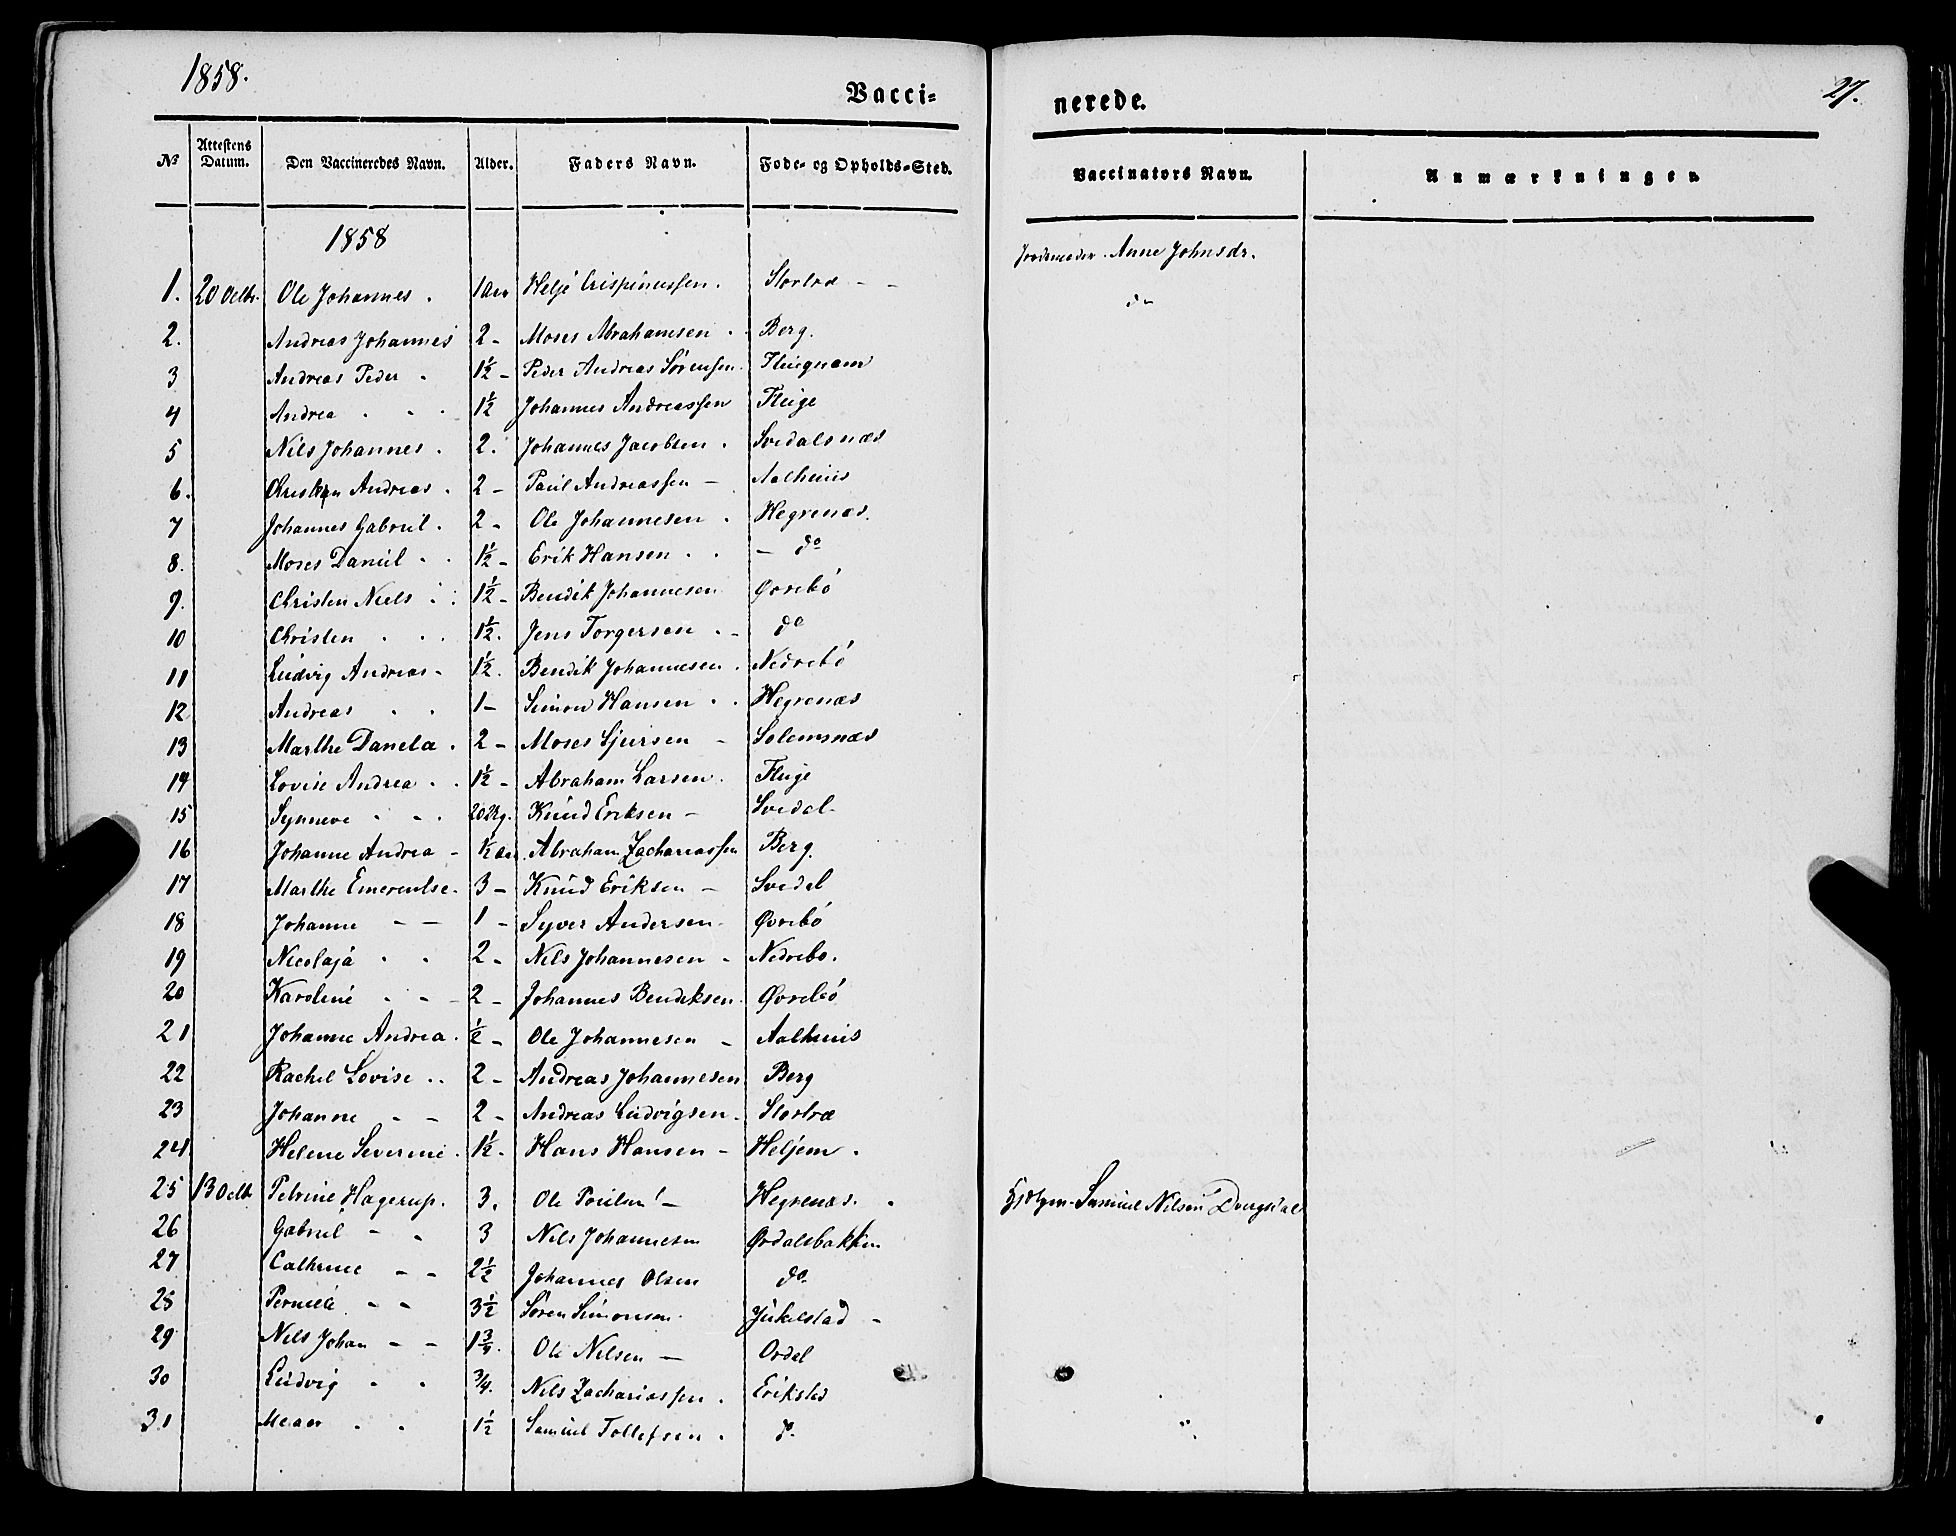 1858.
Vacci=
nerede.
27.
No
Attestens Datum.
Den Vaccineredes Navn.
Alder.
Faders Navn.
Føde- og Opholds-Sted.
Vaccinators Navn.
Anmærkninger.
1858
1. 20 Octb. Ole Johannes . 1 Aar Helje Crispinussen . Stortræ - - Jordemoder Anne Johnsdr.
2. Andreas Johannes 2 - Moses Abrahamsen . . Berg. do
3 Andreas Peder . 1½ - Peder Andreas Sørensen . Flugenam
4 Andrea . . . 1½ Johannes Andreassen Fluge
5 Nils Johannes . 2. Johannes Jacobsen . Svedalsnæs
6. Andreas . 2 - Paul Andreassen - Aalhuus
7 Johannes Gabriel . 2 - Ole Johannesen . Hegrenæs.
8. Moses Daniel . . 1½ - Erik Hansen . . - do
9. Christen Niels . . 1½ - Bendik Johannesen Øvrebö
10 Christen . . . 1½. Jens Torgersen . - do
11 Ludvig Andreas - 1½. Bendik Johannesen . Nedrebö
12 Andreas . . 1 - Simon Hansen . . Hegrenæs
13 Marthe Danela . 2 - Moses Sjursen - Solemsnæs
14 Lovise Andrea . . 1½ - Abraham Larsen . Fluge
15 Synneve . - . Knud Eriksen - Svedal
16 Johanne Andrea - Abraham Zachariassen Berg.
17 Marthe Emerentse . 3 - Knud Eriksen - Svedal
18 Johanne - - 1 - Syver Andersen - Øvrebö
19 Nicolaja . . 2 - Nils Johannesen - Nedrebo.
20 Karoline . - - 2 - Johannes Bendiksen . Øvrebö
21 Johanne Andrea . ½ - Ole Johannesen - Aalhuus
22 Rachel Lovise . . 2 - Andreas Johannesen Berg
23 Johanne - - 2 - Andreas Ludvigsen - Stortræ
24 Helene Severine . 1½ - Hans Hansen - Heljem .
25 13 Octb Petrine Hagerup . 3. Ole Poulsen - Hegrenæs. . Samuel Nilsen Dvergsdal
26 Gabriel - . 3 Nils Johannesen Ørdalsbakken
27 Cathrine - - 2½ Johannes Olsen do.
28 Pernille . - - 3½ Søren Simonsen . Jukelstad -
29 Nils Johan - - 1¾. Ole Nilsen - Ordal
30 Ludvig . . ¾. Nils Zachariassen . Erikstad
31 . . 1½ Samuel Tollefsen . do.